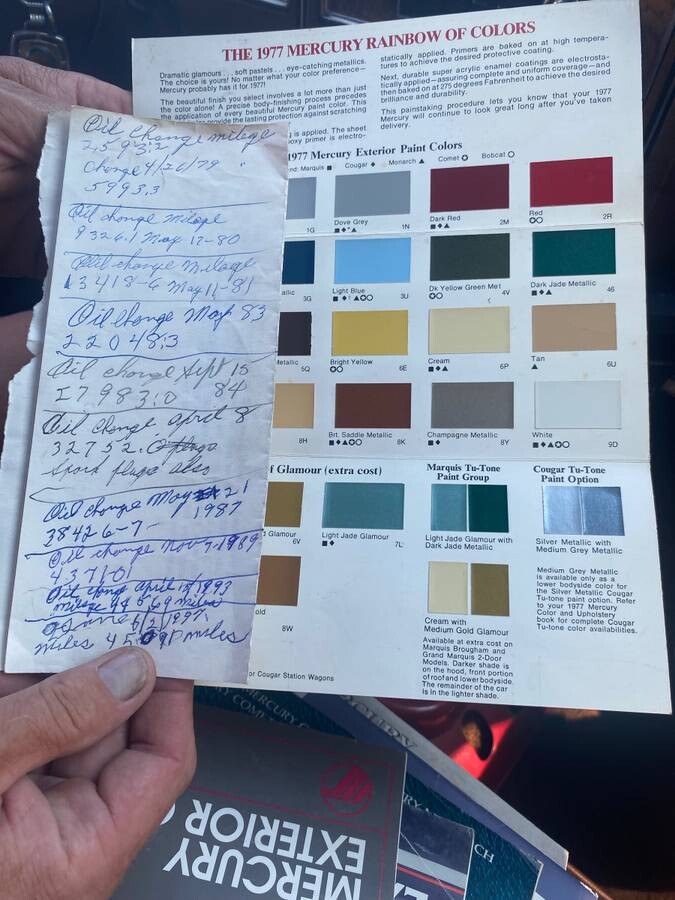 THE 1977 MERCURY RAINBOW OF COLORS
Dramatic glamours . . . soft pastels . . . eye-catching metallics.
The choice is yours! No matter what your color preference—
Mercury probably has it for 1977!
The beautiful finish you select involves a lot more than just
the color alone! A precise body-finishing process precedes
the application of every beautiful Mercury paint color. This
provide the lasting protection against scratching
is applied. The sheet
oxy primer is electro-
statically applied. Primers are baked on at high tempera-
tures to achieve the desired protective coating.
Next, durable super acrylic enamel coatings are electrosta-
tically applied—assuring complete and uniform coverage—and
then baked on at 275 degrees Fahrenheit to achieve the desired
brilliance and durability.
This painstaking procedure lets you know that your 1977
Mercury will continue to look great long after you've taken
delivery.
1977 Mercury Exterior Paint Colors
Marquis ■ Cougar ♦ Monarch ▲ Comet ✪ Bobcat ○
1G
Dove Grey 1N
Dark Red 2M
Red 2R
3G
Light Blue 3U
Dk Yellow Green Met 4V
Dark Jade Metallic 46
etallic 5Q
Bright Yellow 6E
Cream 6P
Tan 6U
8H
Brt. Saddle Metallic 8K
Champagne Metallic 8Y
White 9D
f Glamour (extra cost)
Glamour 6V
Light Jade Glamour 7L
old 8W
Marquis Tu-Tone
Paint Group
Light Jade Glamour with
Dark Jade Metallic
Cream with
Medium Gold Glamour
Available at extra cost on
Marquis Brougham and
Grand Marquis 2-Door
Models. Darker shade is
on the hood, front portion
of roof and lower bodyside.
The remainder of the car
is in the lighter shade.
Cougar Tu-Tone
Paint Option
Silver Metallic with
Medium Grey Metallic
Medium Grey Metallic
is available only as a
lower bodyside color for
the Silver Metallic Cougar
Tu-tone paint option. Refer
to your 1977 Mercury
Color and Upholstery
book for complete Cougar
Tu-tone color availabilities.
or Cougar Station Wagons
Oil change milege
2593.2
change 4/26/79 "
5993.3
Oil change Milage
9326.1 May 12-80
Oil change Milage
13418-6 May 11-81
Oil Change May 83
22048.3
Oil change Sept 15
27983.0 84
Oil change april 8
32752.
Spark plugs also
Oil change May 21
38426-7- 1987
Oil change Nov 7-1989
43710
Oil change april 15, 1993
milage 44569 miles
6/2/1997
miles 45091 miles
MERCURY
EXTERIOR